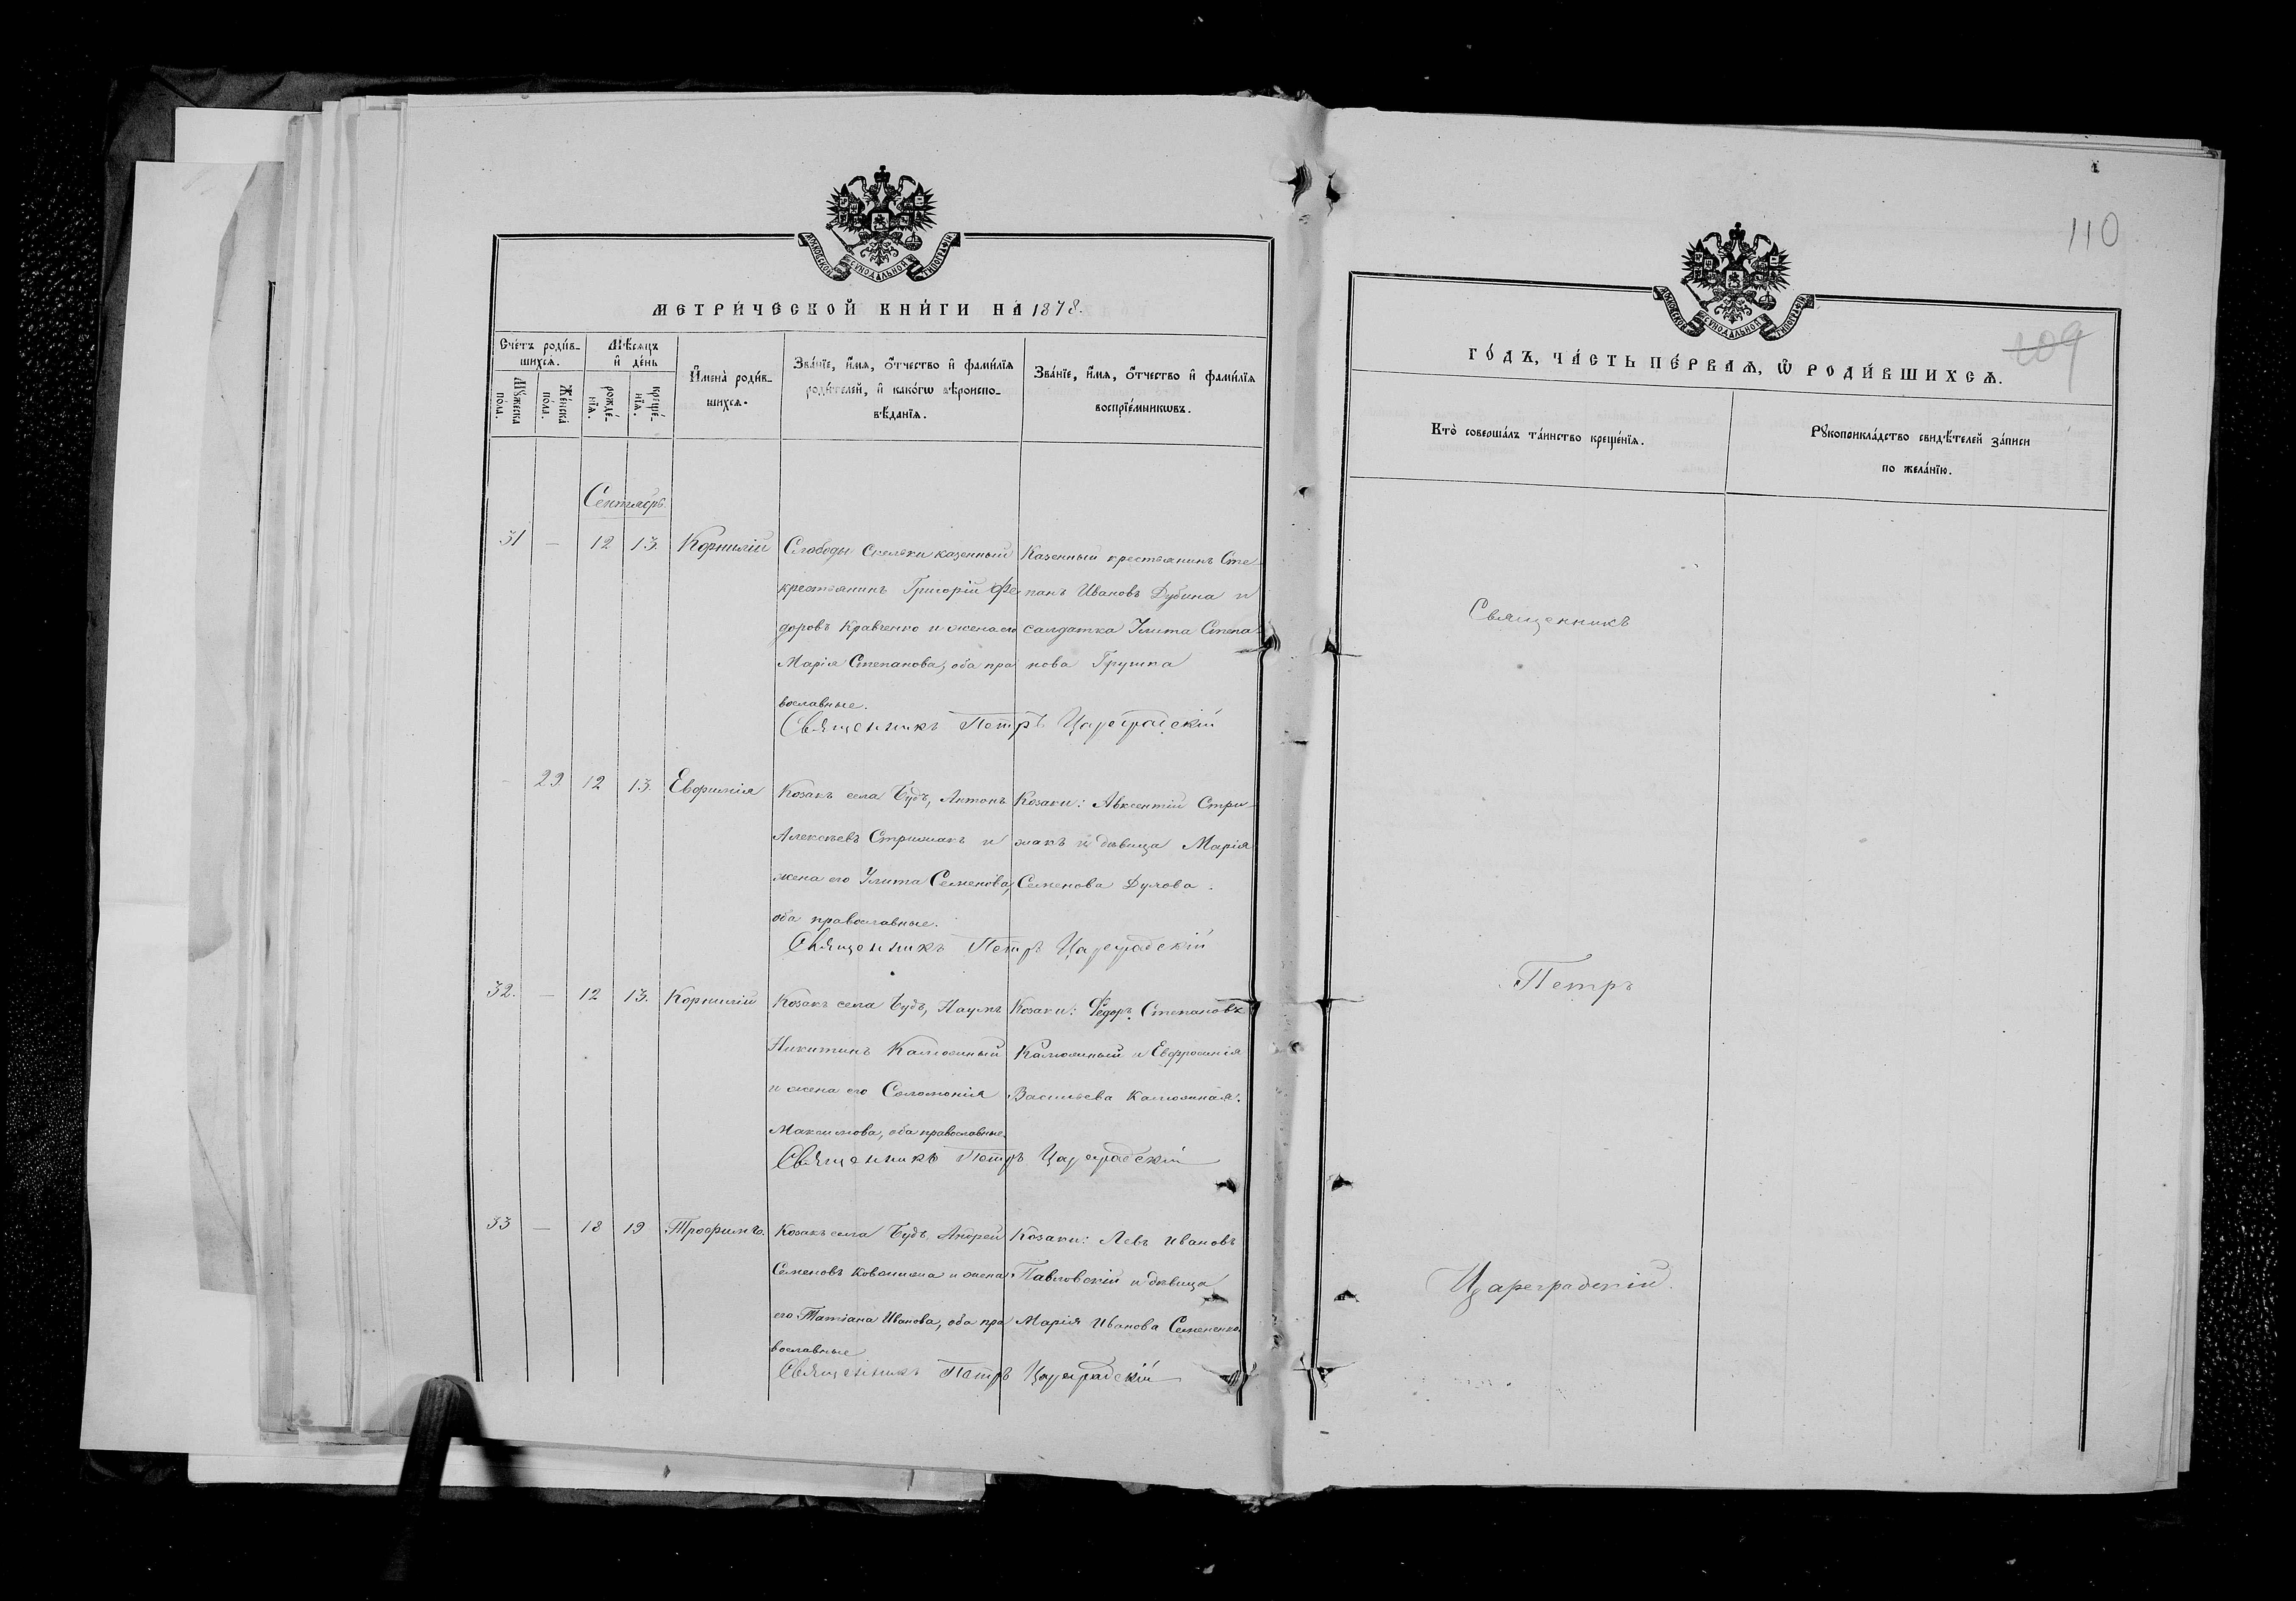 110
109
МОСКОВСКОЙ СѴНОДАЛЬНОЙ ТИПОГРАФІИ
МЕТРИ́ЧЕСКОЙ КНИ́ГИ НА 1878.
Сче́тъ роди́в-
шихсѧ.
Мꙋ́жеска
пола.
Же́нска
по́ла.
Мѣ́сѧцъ
и҆ де́нь
рожде́-
нїѧ.
креще́-
нїѧ.
И҆мена̀ роди́в-
шихсѧ.
Зва́нїе, и҆́мѧ, ѻ҆́тчество и҆ фами́лїѧ
роди́телей, и҆ како́гѡ вѣроиспо-
вѣ́данїѧ.
Зва́нїе, и҆́мѧ, ѻ҆́тчество и҆ фами́лїѧ
воспрїе́мникѡвъ.
Сентябрь.
31 — 12 13. Корнилій
Слободы казенный
крестьянинъ Григорій Фе
доровъ Кравченко и жена его
Марія Степанова, оба пра
вославные.
Казенный крестьянинъ Сте
панъ Ивановъ Дубина и
салдатка Улита Степа
нова Грушка
Священникъ Петръ Цареградскій
29 12 13. Евфимія
Козакъ села Будъ, Антонъ
Алексѣевъ Стрижакъ и
жена его Улита Семенова,
оба православные.
Козаки: Авксентій Стри
жакъ и дѣвица Марія
Семенова
Священникъ Петръ Цареградскій
32. — 12 13. Корнилій
Козакъ села Будъ, Наумъ
Никитинъ Калюжный
и жена его Соломонія
Максимова, оба православные.
Козаки: Федоръ Степановъ
Калюжный и Евфросинія
Васильева Калюжная.
Священникъ Петръ Цареградскій
33 — 18 19 Трофимъ.
Козакъ села Будъ, Андрей
Семеновъ и жена
его Татіана Иванова, оба пра
вославные
Козаки: Левъ Ивановъ
Павловскій и дѣвица
Марія Иванова Семененкова
Священникъ Петръ Цареградскій
МОСКОВСКОЙ СѴНОДАЛЬНОЙ ТИПОГРАФІИ
ГО́ДЪ, ЧА́СТЬ ПЕ́РВАѦ, Ѡ҆ РОДИ́ВШИХСѦ.
Кто̀ соверша́лъ та́инство креще́нїѧ.
Рꙋкоприкла́дство свидѣ́телей за́писи
по жела́нїю.
Священникъ
Петръ
Цареградскій.